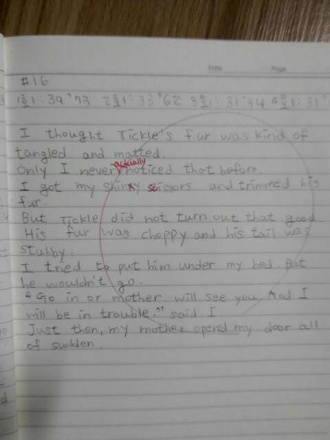 Date Page
#16
1회: 39"73 2회: 33"62 3회: 31"34 4회: 31"
I thought Tickle's fur was kind of
tangled and matted.
actually
Only I never noticed that before.
I got my shiny scissors and trimmed his
fur.
But Tickle did not turn out that good.
His fur was choppy and his tail was
stubby.
I tried to put him under my bed. But
he wouldn't go.
"Go in or mother will see you. And I
will be in trouble." said I
Just then, my mother opend my door all
of sudden.